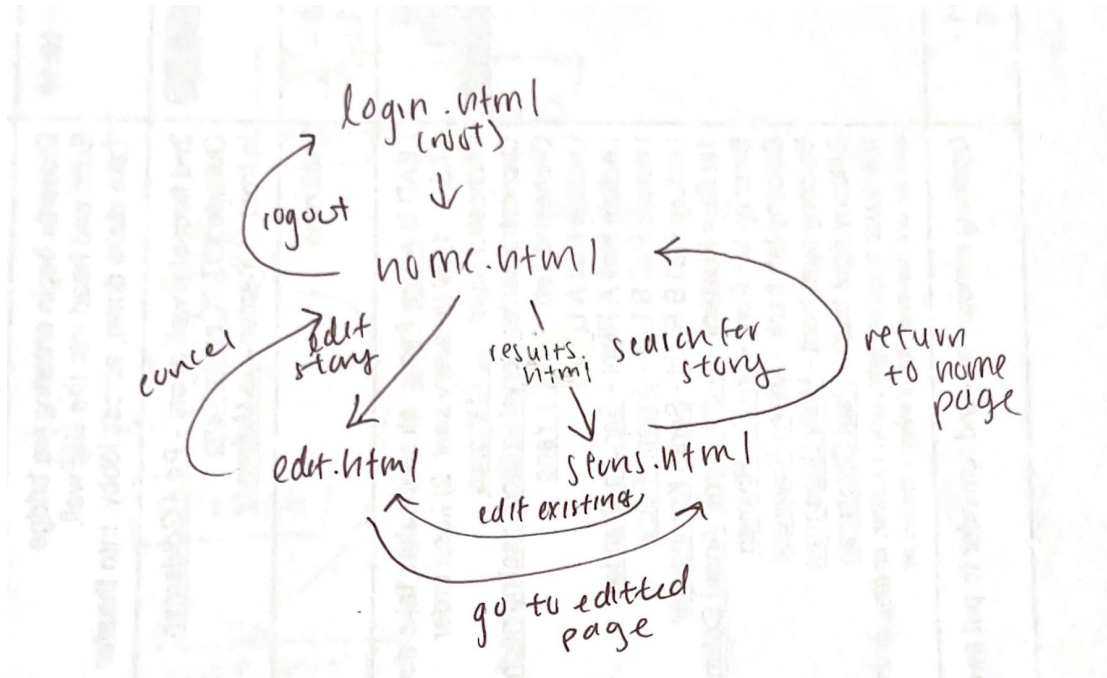 login.html
(root)
logout
home.html
cancel
edit
story
results.
html
search for
story
return
to home
page
edit.html
.html
edit existing
go to editted
page